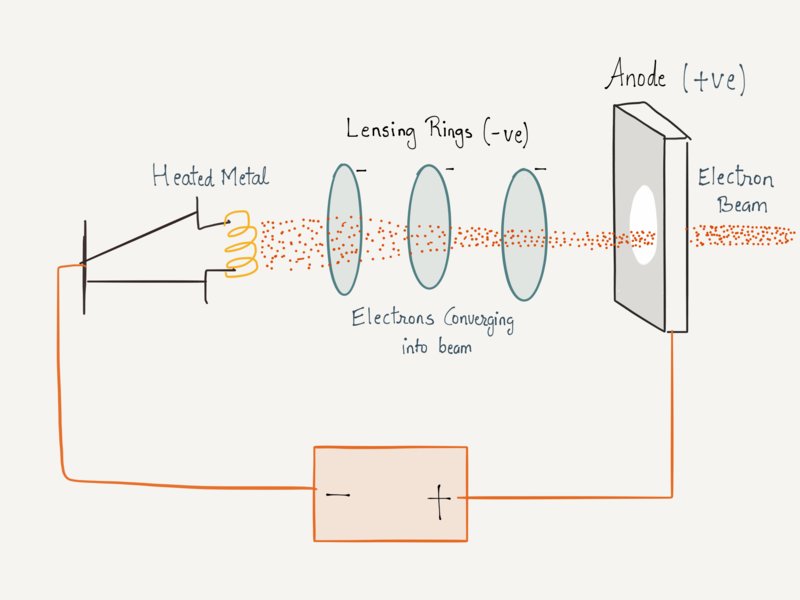 Anode (+ve)
Lensing Rings (-ve)
Heated Metal
- - -
Electron
Beam
Electrons Converging
into beam
- +